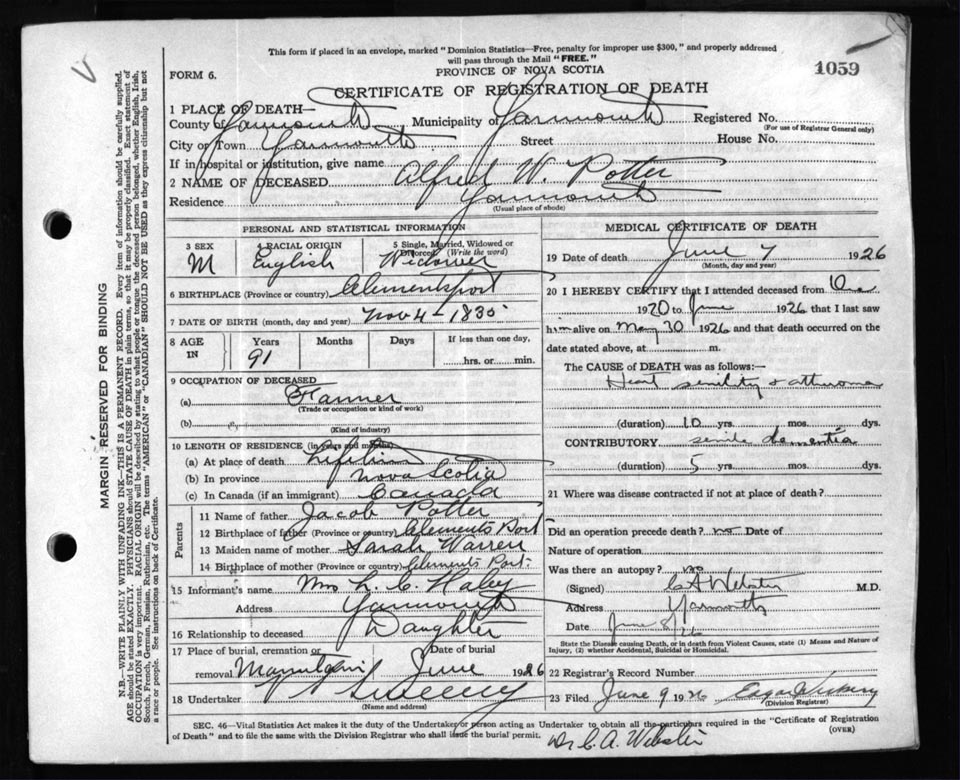 This form if placed in an envelope, marked "Dominion Statistics—Free, penalty for improper use $300," and properly addressed
will pass through the Mail "FREE."
PROVINCE OF NOVA SCOTIA
FORM 6.
1059
CERTIFICATE OF REGISTRATION OF DEATH
1 PLACE OF DEATH—
County of Yarmouth Municipality of Yarmouth Registered No.
(For use of Registrar General only)
City or Town Yarmouth Street House No.
If in hospital or institution, give name
2 NAME OF DECEASED Alfred W. Potter
Residence Yarmouth
(Usual place of abode)
PERSONAL AND STATISTICAL INFORMATION
3 SEX 4 RACIAL ORIGIN 5 Single, Married, Widowed or
Divorced (Write the word)
M English Widower
6 BIRTHPLACE (Province or country) Clementsport
7 DATE OF BIRTH (month, day and year) Nov 4 - 1835
8 AGE IN Years Months Days If less than one day,
91 hrs. or min.
9 OCCUPATION OF DECEASED
(a) Farmer
(Trade or occupation or kind of work)
(b)
(Kind of industry)
10 LENGTH OF RESIDENCE (in years and months)
(a) At place of death Lifetime
(b) In province Nova Scotia
(c) In Canada (if an immigrant) Canada
Parents
11 Name of father Jacob Potter
12 Birthplace of father (Province or country) Clements Port
13 Maiden name of mother Sarah Warren
14 Birthplace of mother (Province or country) Clements Port
15 Informant's name Mrs L. C. Haley
Address Yarmouth
16 Relationship to deceased Daughter
17 Place of burial, cremation or Date of burial
removal June 1926
18 Undertaker Sweeny
(Name and address)
MEDICAL CERTIFICATE OF DEATH
19 Date of death June 7 1926
(Month, day and year)
20 I HEREBY CERTIFY that I attended deceased from
1920 to June 1926 that I last saw
him alive on May 30 1926 and that death occurred on the
date stated above, at m.
The CAUSE of DEATH was as follows:—
Heart senility & atheroma
(duration) 10 yrs. mos. dys.
CONTRIBUTORY senile dementia
(duration) 5 yrs. mos. dys.
21 Where was disease contracted if not at place of death?
Did an operation precede death? no Date of
Nature of operation
Was there an autopsy? no
(Signed) C A Webster M.D.
Address Yarmouth
Date June 8/26
State the Disease causing Death, or in Death from Violent Causes, state (1) Means and Nature of
Injury, (2) whether Accidental, Suicidal or Homicidal.
22 Registrar's Record Number
23 Filed June 9 1926
(Division Registrar)
SEC. 46—Vital Statistics Act makes it the duty of the Undertaker or person acting as Undertaker to obtain all the particulars required in the "Certificate of Registration
of Death" and to file the same with the Division Registrar who shall issue the burial permit.
(OVER)
Dr C. A. Webster
MARGIN RESERVED FOR BINDING
N.B.—WRITE PLAINLY WITH UNFADING INK—THIS IS A PERMANENT RECORD. Every item of information should be carefully supplied.
AGE should be stated EXACTLY. PHYSICIANS should STATE CAUSE OF DEATH in plain terms, so that it may be properly classified. Exact statement of
OCCUPATION is very important. RACIAL ORIGIN will be described by stating to what people or tongue the deceased person belonged, whether English, Irish,
Scotch, French, German, Russian, Ruthenian, etc. The terms "AMERICAN" or "CANADIAN" SHOULD NOT BE USED as they express citizenship but not
a race or people. See instructions on back of Certificate.